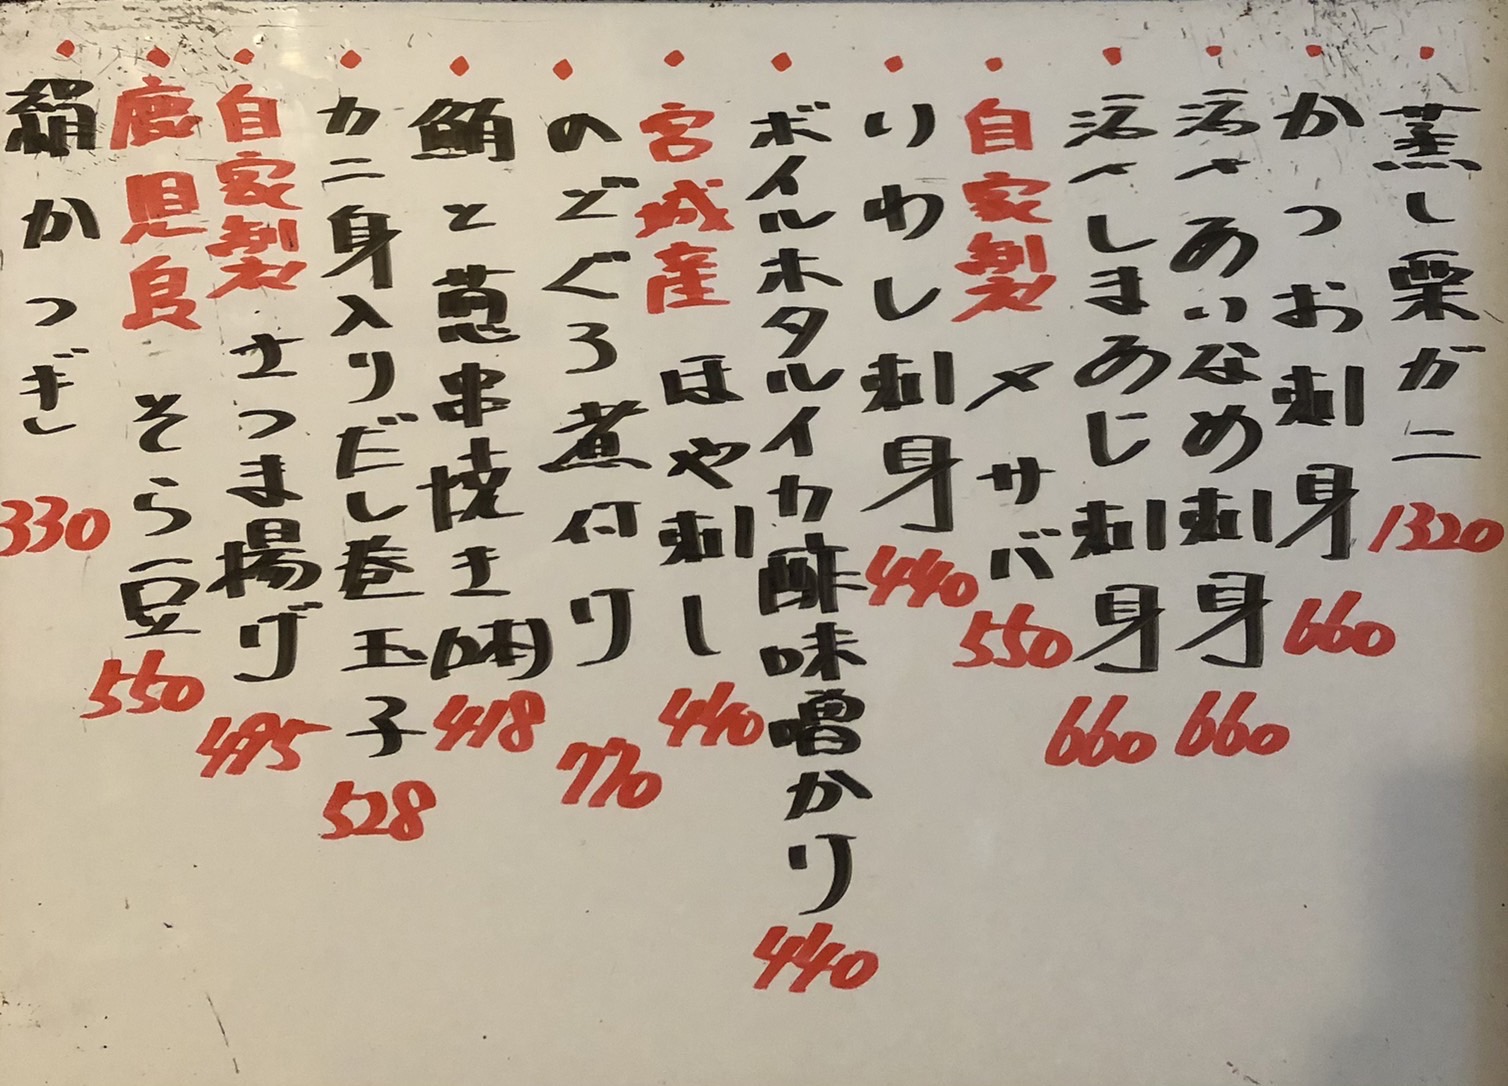 蒸し栗ガニ 1320
かつお刺身 660
活〆あいなめ刺身 660
活〆しまあじ刺身 660
自家製 〆サバ 550
いわし刺身 440
ボイルホタルイカ酢味噌かけ 440
宮城産 ほや刺し 440
のどぐろ煮付け 770
鮪と葱串焼き 418
カニ身入りだし巻玉子 528
自家製 さつま揚げ 495
鹿児島 そら豆 550
絹かつぎ 330